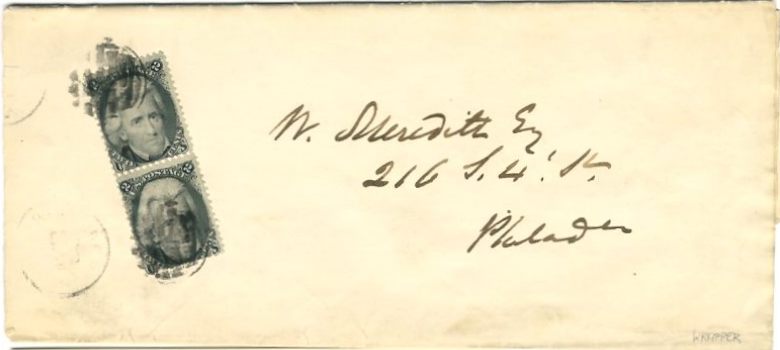 W. Meredith Eq
216 S. 4' St.
Philada
WRAPPER